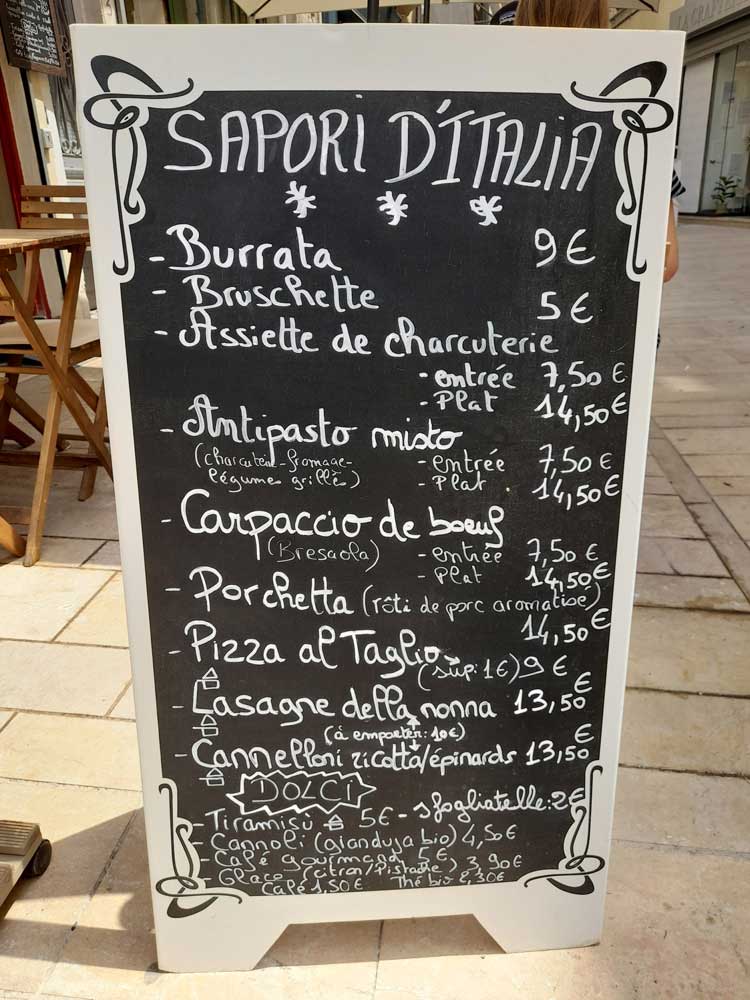 SAPORI D'ITALIA
- Burrata 9 €
- Bruschette 5 €
- Assiette de charcuterie
- entrée 7,50 €
- Plat 14,50 €
- Antipasto misto
(charcuterie-fromage- - entrée 7,50 €
légume grillé) - Plat 14,50 €
- Carpaccio de boeuf
(Bresaola) - entrée 7,50 €
- Plat 14,50 €
- Porchetta (rôti de porc aromatise)
14,50 €
- Pizza al Taglio (sup: 1€) 9 €
- Lasagne della nonna 13,50 €
(à emporter: 10€)
- Cannelloni ricotta/épinards 13,50 €
DOLCI
- Tiramisù 5€ - sfogliatelle: 2€
- Cannoli (gianduja bio) 4,50€
- Café gourmand 5€
- Glace (citron/Pistache) 3,90€
Café 1,50€ Thé bio 2,30€
LA CRAP